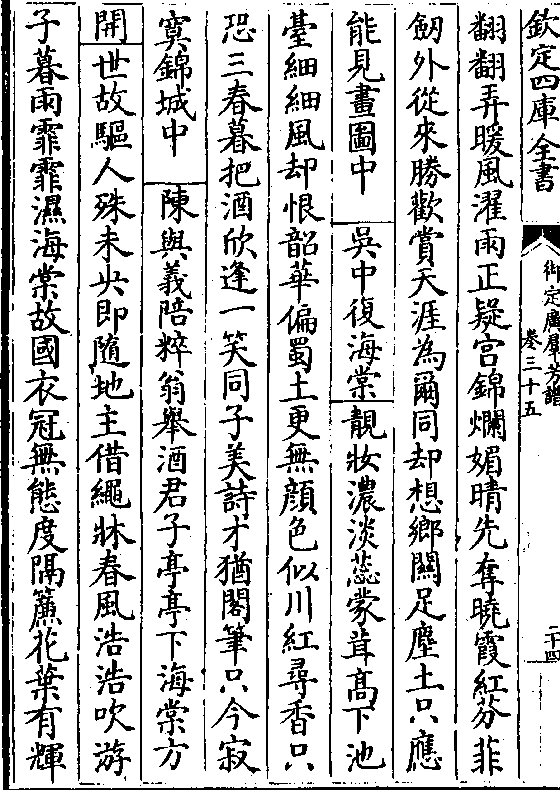 欽定四庫全書
御定廣群芳譜
卷三十五
二十四
翻翻弄暖風濯雨正疑宫錦爛媚晴先奪曉霞紅芬菲
劒外從來勝歡賞天涯為爾同却想鄉關足塵土只應
能見畫圖中 吳中復海棠靚妝濃淡蕊蒙茸髙下池
臺細細風却恨韶華偏蜀土更無顔色似川紅尋香只
恐三春暮把酒欣逢一笑同子美詩才猶閣筆只今寂
寞錦城中 陳與義陪粹翁舉酒君子亭亭下海棠方
開 世故驅人殊未央即隨地主借繩牀春風浩浩吹游
子暮雨霏霏濕海棠故國衣冠無態度隔簾花葉有輝